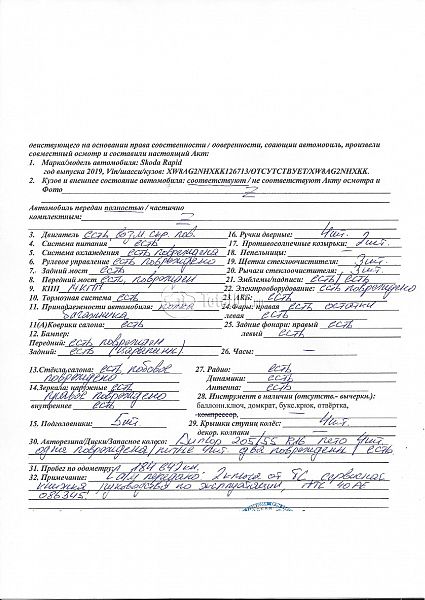 действующего на основании права собственности / доверенности, сошции автомобиль, произвели
совместный осмотр и составили настоящий Акт:
1. Марка/модель автомобиля: Skoda Rapid
год выпуска 2019, Vin/шасси/кузов: XW8AG2NHXKK126713/ОТСУТСТВУЕТ/XW8AG2NHXKK.
2. Кузов и внешнее состояние автомобиля: соответствуют / не соответствуют Акту осмотра и
Фото
Автомобиль передан полностью / частично
комплектным:
3. Двигатель есть 16. Ручки дверные: 4шт.
4. Система питания есть 17. Противосолнечные козырьки: 2шт.
5. Система охлаждения есть повреждена 18. Пепельницы:
6. Рулевое управление есть повреждено 19. Щетки стеклоочистителя: 3шт.
7. Задний мост есть 20. Рычаги стеклоочистителя: 3шт.
8. Передний мост есть, поврежден 21. Эмблемы/надписи: есть/есть
9. КПП АКПП 22. Электрооборудование: есть повреждено
10. Тормозная система есть 23. АКБ: есть
11. Принадлежности автомобиля: полка 24. Фары: правая есть остатки
багажника левая есть
11(А)Коврики салона: есть 25. Задние фонари: правый есть
12. Бампер: левый есть
Передний: есть поврежден
Задний: есть 26. Часы:
13.Стёкла,салона: есть лобовое 27. Радио: есть
повреждено Динамики: есть
14.Зеркала: наружные есть Антенна: есть
правое повреждено 28. Инструмент в наличии (отсутств.- вычеркн.):
внутреннее есть баллонн.ключ, домкрат, букс.крюк, отвёртка,
компрессор,
15. Подголовники: 5шт 29. Крышки ступиц колёс: 4шт.
декор. колпаки
30. Авторезина/Диски/Запасное колесо: 205/55 R16 лето 4шт.
одна повреждена/литые 4шт. два повреждены/есть
31. Пробег по одометру: 184 642 км.
32. Примечание: передано 2 ключа от ТС сервисная
книжка руководство по эксплуатации.
086345